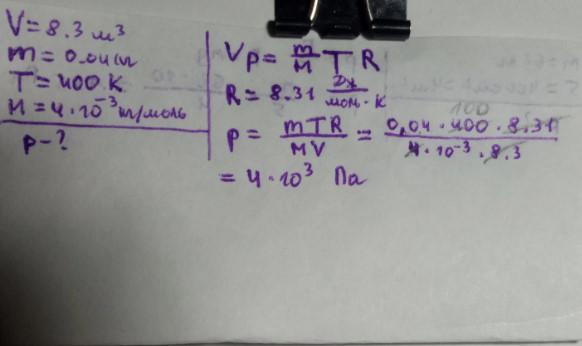 V = 8.3 м³
m = 0.04 кг
T = 400 K
M = 4 · 10⁻³ кг/моль
p - ?
Vp = m/M T R
R = 8.31 Дж/моль · K
p = mTR/MV = 0,04 · 400 · 8.31/4 · 10⁻³ · 8.3
100
= 4 · 10³ Па